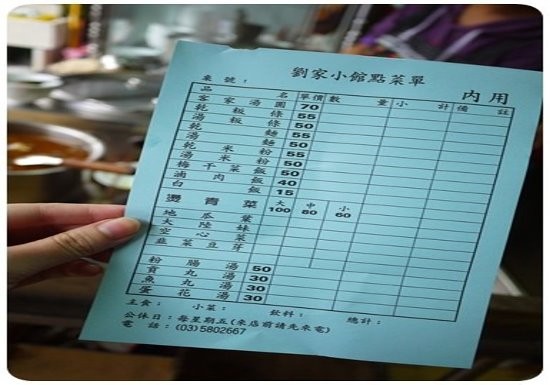 劉家小館點菜單
來號： 內用
品名 單價 數量 小計 備註
客家湯圓 70
乾粄條 55
湯粄條 50
乾麵 55
湯麵 50
乾米粉 55
湯米粉 50
梅干菜飯 50
滷肉飯 40
白飯 15
燙青菜 大100 中80 小60
地瓜葉
大陸妹
空心菜
韭菜豆芽
粉腸湯 50
貢丸湯 30
魚丸湯 30
蛋花湯 30
主食： 小菜： 飲料： 總計：
公休日：每星期五(來店前請先來電)
電話：(03)5802667